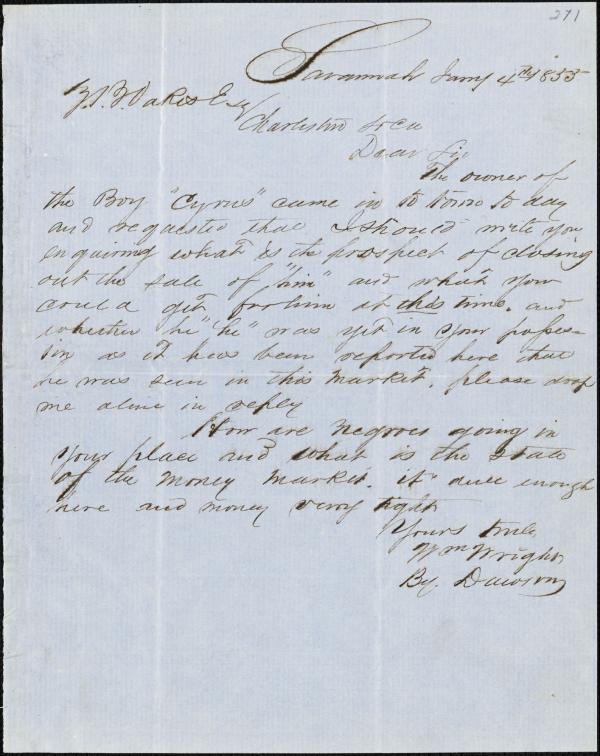 271
Savannah Jany 4th 1855
Z. B. Oakes Esq
Charleston So Ca
Dear Sir
The owner of
the Boy "Cyrus" came in to town to day
and requested that I should write you
enquiring what is the prospect of closing
out the sale of "him" and what you
could get for him at this time. and
whether he "he" was yet in your posses=
sion as it has been reported here that
he was seen in this market. please drop
me a line in reply
How are negroes going in
your place and what is the state
of the money market. it dull enough
here and money very tight
Yours truly
Wm Wright
By. Dawson